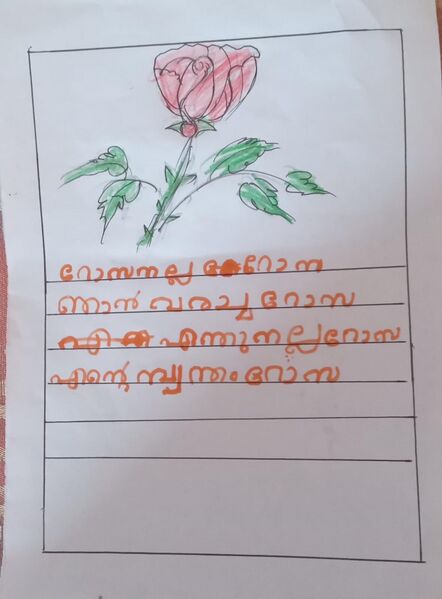 റോസനല്ല റോസ
ഞാൻ വരച്ച റോസ
എന്തുനല്ലറോസ
എന്റെ സ്വന്തംറോസ